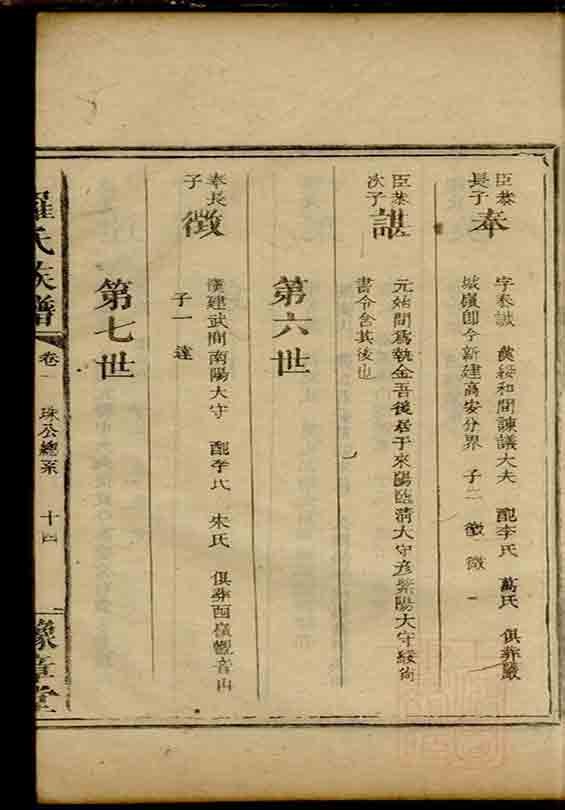 臣恭長子
奉
字奉誠 漢綏和間諫議大夫 配李氏 萬氏 俱葬嚴
城嶺即今新建高安分界 子二 徵 微
臣恭次子
諶
元始間為執金吾後居于來陽臨清大守彦紫陽大守綏尚
書令舍其後也
第六世
奉長子
徵
漢建武間南陽大守 配李氏 朱氏 俱葬酉嶺觀音山
子一 達
第七世
羅氏族譜
卷一 珠公總系 十四
豫章堂